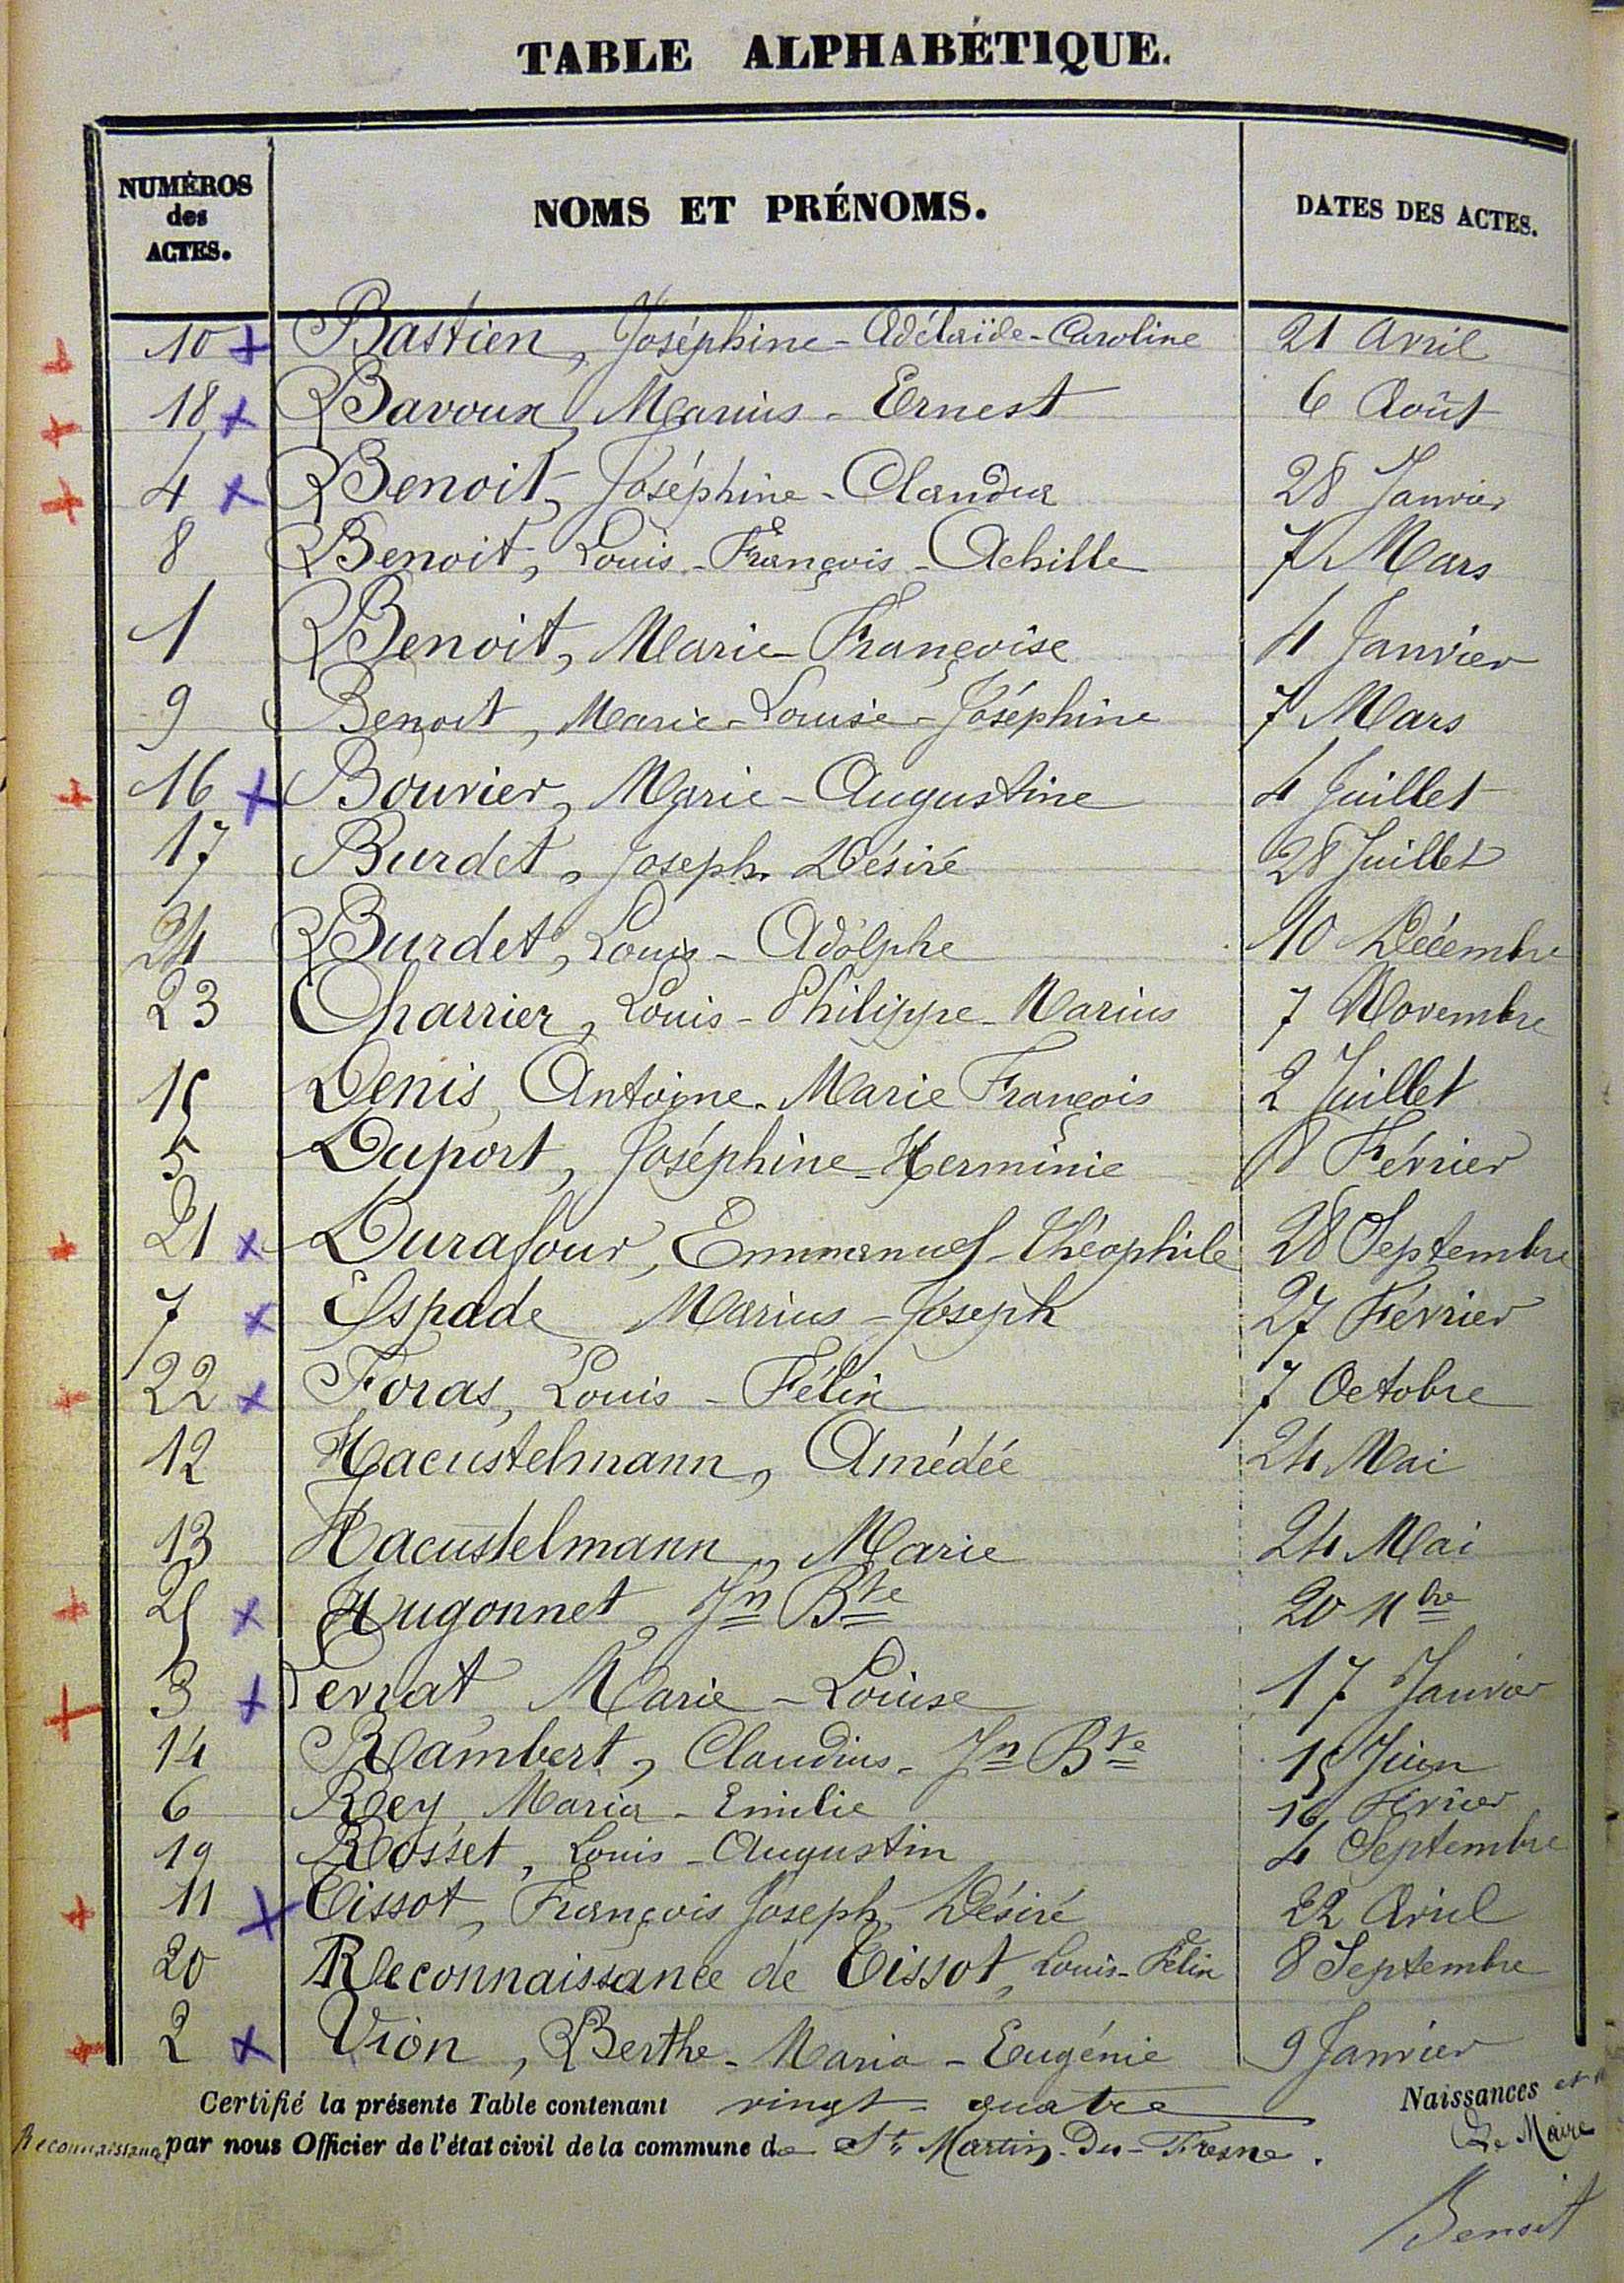 TABLE ALPHABÉTIQUE.
NUMÉROS
des
ACTES.
NOMS ET PRÉNOMS.
DATES DES ACTES.
10 Bastien, Joséphine-Adélaïde-Caroline 21 Avril
18 Bavoux, Marius-Ernest 6 Août
4 Benoit, Joséphine-Claudia 28 Janvier
8 Benoit, Louis-François-Achille 7 Mars
1 Benoit, Marie-Françoise 4 Janvier
9 Benoit, Marie-Louise-Joséphine 7 Mars
16 Bouvier, Marie-Augustine 4 Juillet
17 Burdet, Joseph Désiré 28 Juillet
24 Burdet, Louis-Adolphe 10 Décembre
23 Charrier, Louis-Philippe-Marius 7 Novembre
15 Denis, Antoine-Marie François 2 Juillet
5 Duport, Joséphine-Herminie 8 Février
21 Durafour, Emmanuel-Théophile 28 Septembre
7 Espade Marius-Joseph 27 Février
22 Foras, Louis-Félix 7 Octobre
12 Hacustelmann, Amédée 24 Mai
13 Hacustelmann, Marie 24 Mai
25 Hugonnet, Jn Bte 20 Xbre
3 Perrat Marie-Louise 17 Janvier
14 Rambert, Claudius-Jn Bte 15 Juin
6 Rey Maria-Emilie 16 Février
19 Rosset, Louis-Augustin 4 Septembre
11 Tissot, François Joseph Désiré 22 Avril
20 Reconnaissance de Tissot, Louis-Félix 8 Septembre
2 Vion, Berthe-Maria-Eugénie 9 Janvier
Certifié la présente Table contenant vingt-quatre Naissances et
Reconnaissance par nous Officier de l'état civil de la commune de St Martin-Du-Fresne. Le Maire
Benoit